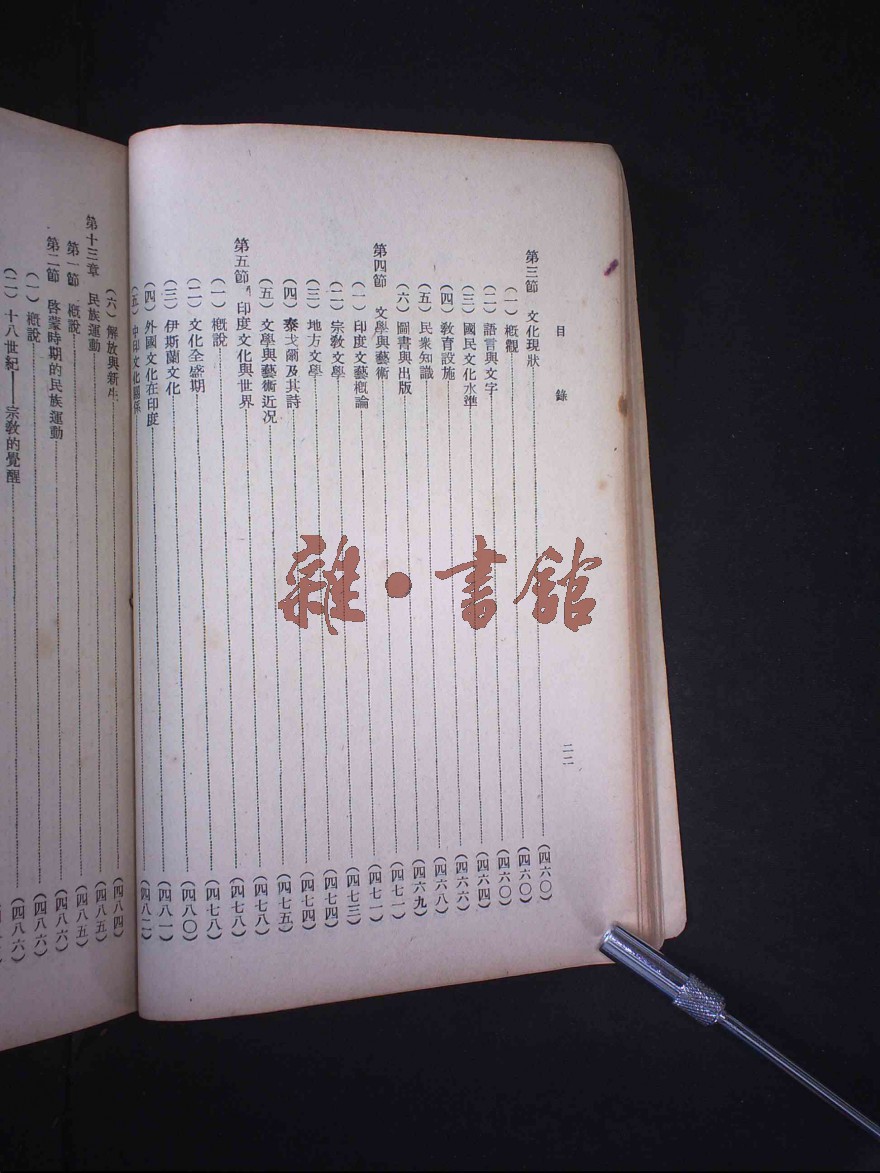 目 錄 二二
第三節 文化現狀……(四六〇)
(一) 概觀……(四六〇)
(二) 語言與文字……(四六〇)
(三) 國民文化水準……(四六四)
(四) 教育設施……(四六六)
(五) 民衆知識……(四六八)
(六) 圖書與出版……(四六九)
第四節 文學與藝術……(四七一)
(一) 印度文藝概論……(四七一)
(二) 宗教文學……(四七三)
(三) 地方文學……(四七四)
(四) 泰戈爾及其詩……(四七四)
(五) 文學與藝術近況……(四七五)
第五節 印度文化與世界……(四七八)
(一) 概說……(四七八)
(二) 文化全盛期……(四七八)
(三) 伊斯蘭文化……(四八〇)
(四) 外國文化在印度……(四八一)
(五) 中印文化關係……(四八二)
(六) 解放與新生……(四八四)
第十三章 民族運動……(四八五)
第一節 概說……(四八五)
第二節 啓蒙時期的民族運動……(四八六)
(一) 概說……(四八六)
(二) 十八世紀——宗教的覺醒……(四八六)
雜·書館